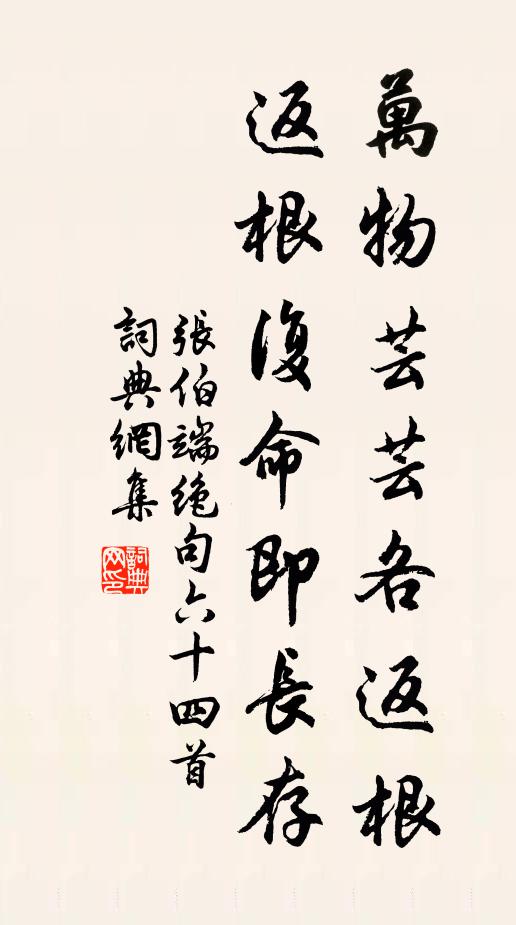 萬物芸芸各返根
返根復命即長存
張伯端絶句六十四首
詞典網集
詞典网印